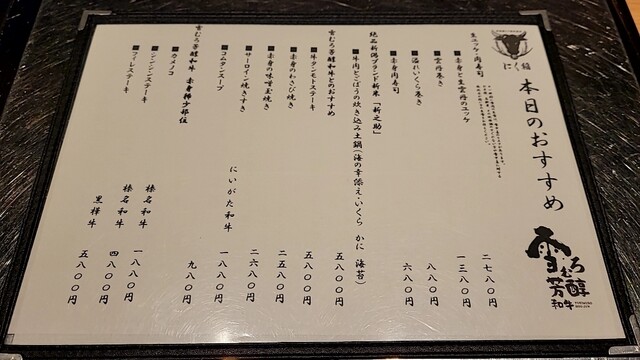 本日のおすすめ
雪むろ
芳醇
和牛
生ユッケ・肉寿司
■赤身と生雲丹のユッケ 二七八〇円
■雲丹巻き 一三八〇円
■溢れいくら巻き 八八〇円
■赤身肉寿司 六八〇円
絶品新潟ブランド新米「新之助」
■牛肉とごぼうの炊き込み土鍋(海の幸添え・いくら かに 海苔) 五八〇〇円
雪むろ芳醇和牛とのおすすめ
■牛タンモトステーキ 五八〇〇円
■赤身のわさび焼き 二五八〇円
■赤身の味噌玉焼き 二六八〇円
■サーロイン焼きすき にいがた和牛 一八八〇円
■コムタンスープ 九八〇円
雪むろ芳醇和牛 赤身稀少部位
■カメノコ 榛名和牛 一八八〇円
■シンシンステーキ 榛名和牛 四八〇〇円
■フィレステーキ 黒樺牛 五八〇〇円